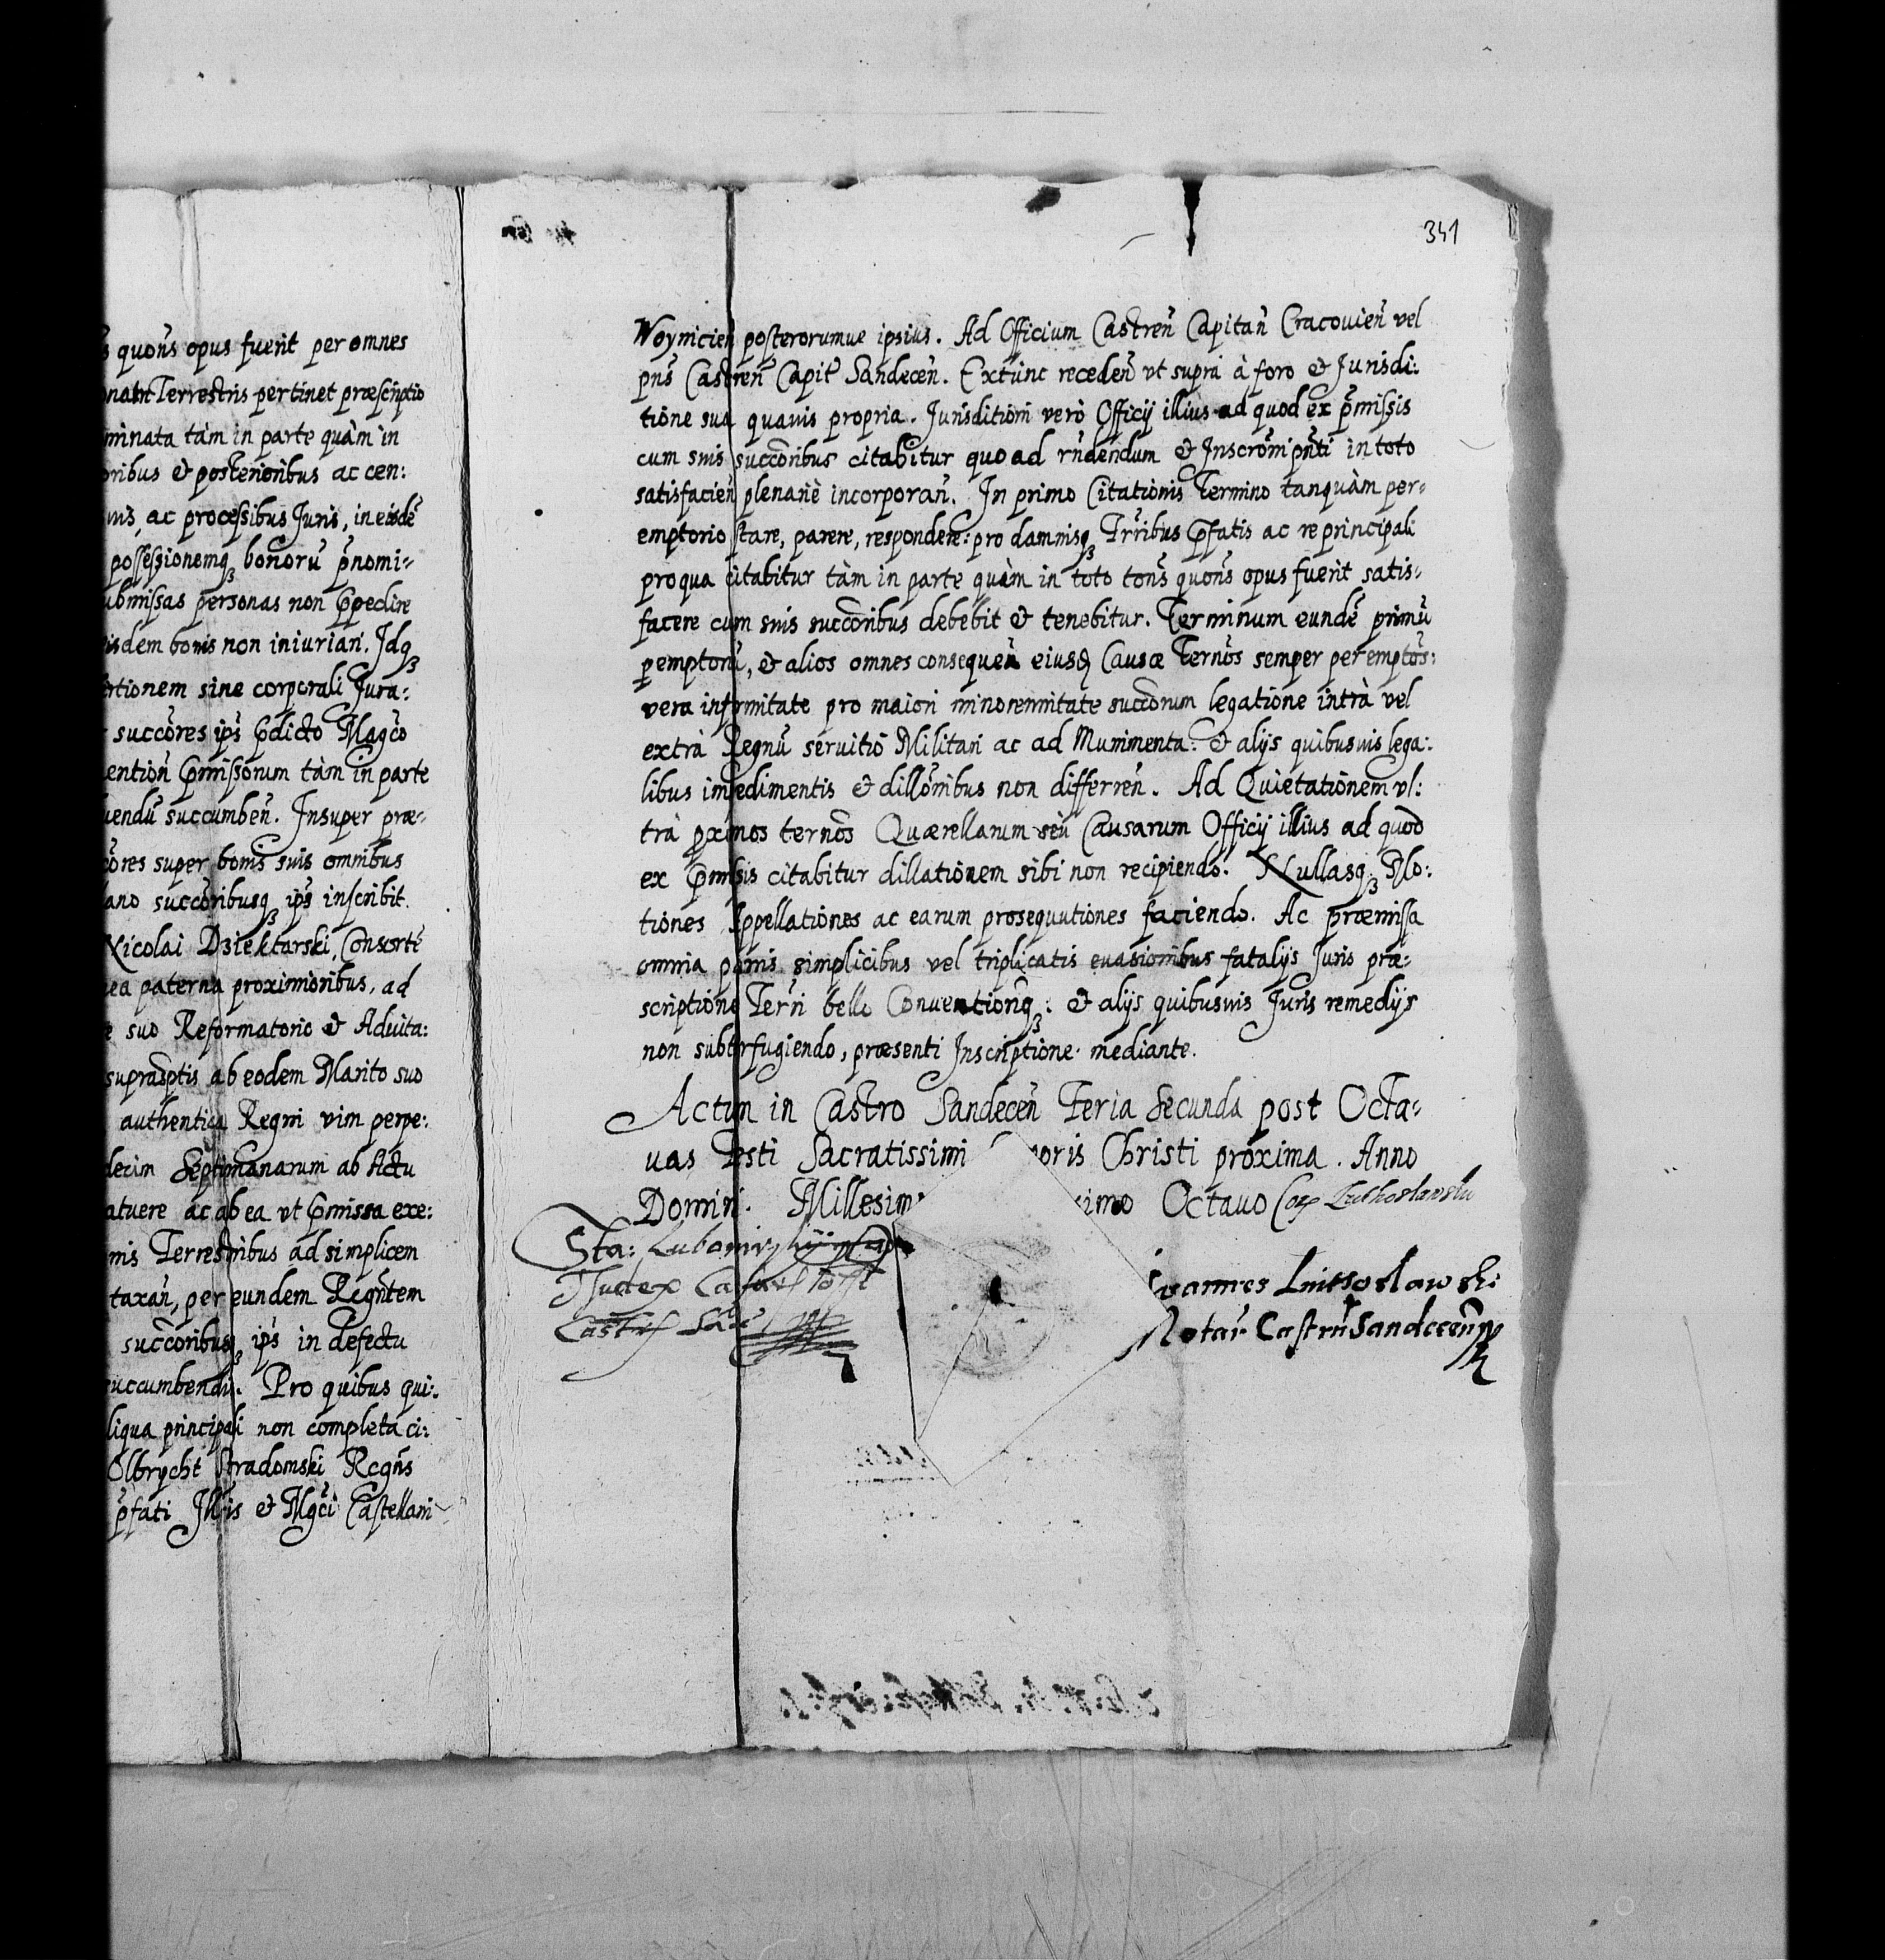 341
quōns opus fuerit per omnes
Terrestris pertinet præscriptio
minata tàm in parte quàm in
oribus & posterioribus ac cen:
ac processibus Juris, in eisdē
possessionemq3 bonorū p̄nomi-
ubmissas personas non p̄pedire
isdem bonis non iniuriari. Idq3
ertionem sine corporali Jura:
succōres ip̄s p̄dicto Magc̄o
ention̄ p̄missorum tàm in parte
uendū succumben̄. Insuper præ-
cōres super bonis suis omnibus
ano succōribusq3 ip̄s inscribit.
Nicolai Dziektarski, Consorte
ea paterna proximioribus, ad
e suo Reformatorio & Aduita:
suprascp̄tis ab eodem Marito suo
authentica Regni vim perpe:
decim Septimanarum ab Actu
atuere ac ab ea vt p̄missa exe:
nis Terrestribus ad simplicem
taxan̄, per eundem Regn̄tem
succōribusq3 ip̄s in defectu
succumbendi. Pro quibus qui:
liqua principali non completa ci:
Olbrycht Stradomski Regn̄s
p̄fati Ill̄is & Mgc̄i Castellani
Woynicien̄ posterorumue ipsius. Ad Officium Castren̄ Capitan̄ Cracouien̄ vel
pn̄s Castren̄ Capit̄ Sandecen̄. Extunc receden̄ vt supra à foro & Jurisdi:
tione sua quauis propria. Jurisditioni verò Officij illius ad quod ex p̄missis
cum suis succōribus citabitur quo ad rn̄dendum & Inscrōni pn̄ti in toto
satisfacien̄ plenariè incorporan̄. In primo Citationis Termino tanquàm per-
emptorio stare, parere, respondere: pro damnisq3 Trr̄ibus p̄fatis ac re principali
pro qua citabitur tàm in parte quàm in toto tōns quōns opus fuerit satis-
facere cum suis succōribus debebit & tenebitur. Terminum eundē primū
p̄emptoriū, & alios omnes consequen̄ eiusd̄ Causæ Ternōs semper peremptōs:
vera infirmitate pro maiori minorennitate succōrum legatione intrà vel
extrà Regnū seruitiō Militari ac ad Munimenta: & alijs quibusuis lega:
libus impedimentis & dillōnibus non differen̄. Ad Quietationem vl:
trà p̄ximos ternōs Quærellarum sèu Causarum Officij illius ad quod
ex p̄missis citabitur dillationem sibi non recipiendo. Nullasq3 Mo:
tiones Appellationes ac earum prosequutiones faciendo. Ac præmissa
omnia pænis simplicibus vel triplicatis euasionibus fatalijs Juris præ-
scriptione Terr̄i bello Conuentionq3: & alijs quibusuis Juris remedijs
non subterfugiendo, præsenti Inscriptione mediante.
Actum in Castro Sandecen̄ Feria Secunda post Octa-
uas Festi Sacratissimi oris Christi proxima. Anno
Domini Millesim imo Octauo
Sta: Lubomirzky
Judex
Ioannes
Notar. Castrn̄ Sandecen̄